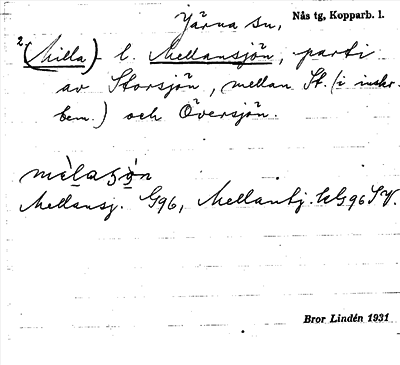 Järna sn, Nås tg, Kopparb. l.
2. (Milla) l. Mellansjön, parti
av Storsjön, mellan St. (i inskr.
bem.) och Översjön.
Mellansj. G96, Mellantj. kG96SV.
Bror Lindén 1931